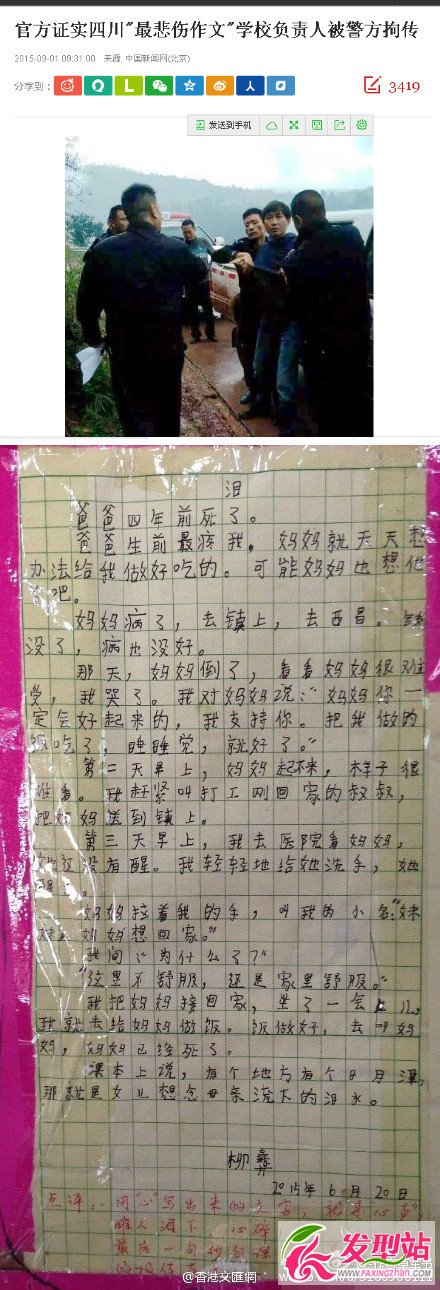 官方证实四川"最悲伤作文"学校负责人被警方拘传
2015-09-01 09:31:00 来源: 中国新闻网(北京)
分享到：
3419
发送到手机
泪
爸爸四年前死了。
爸爸生前最疼我。妈妈就天天想
办法给我做好吃的。可能妈妈也想他
了吧。
妈妈病了，去镇上，去西昌。钱
没了，病也没好。
那天，妈妈倒了，看看妈妈很难
受，我哭了。我对妈妈说：“妈妈你一
定会好起来的，我支持你。把我做的
饭吃了，睡睡觉，就好了。”
第二天早上，妈妈起不来，样子很
难看。我赶紧叫打工刚回家的叔叔，
把妈妈送到镇上。
第三天早上，我去医院看妈妈，
她还没有醒。我轻轻地给她洗手，她
醒了。
妈妈拉着我的手，叫我的小名：“妹
妹，妈妈想回家。”
我问：“为什么了？”
“这里不舒服，还是家里舒服。”
我把妈妈接回家，坐了一会儿，
我就去给妈妈做饭。饭做好，去叫妈
妈，妈妈已经死了。
课本上说，有个地方有个日月潭，
那就是女儿想念母亲流下的泪水。
柳彝
2015年6月20日
点评：用“心”写出来的文字，
催人泪下
最后一句
@香港文匯網
发型站
FAXINGZHAN.COM